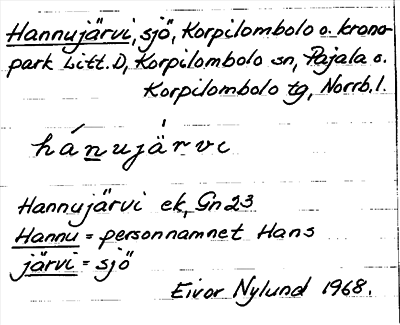 Hannujärvi, sjö, Korpilombolo o. krono-
park Litt. D, Korpilombolo sn, Pajala o.
Korpilombolo tg, Norrb. l.
hánujä́rvi
Hannujärvi ek, Gn23
Hannu = personnamnet Hans
järvi = sjö
Eivor Nylund 1968.